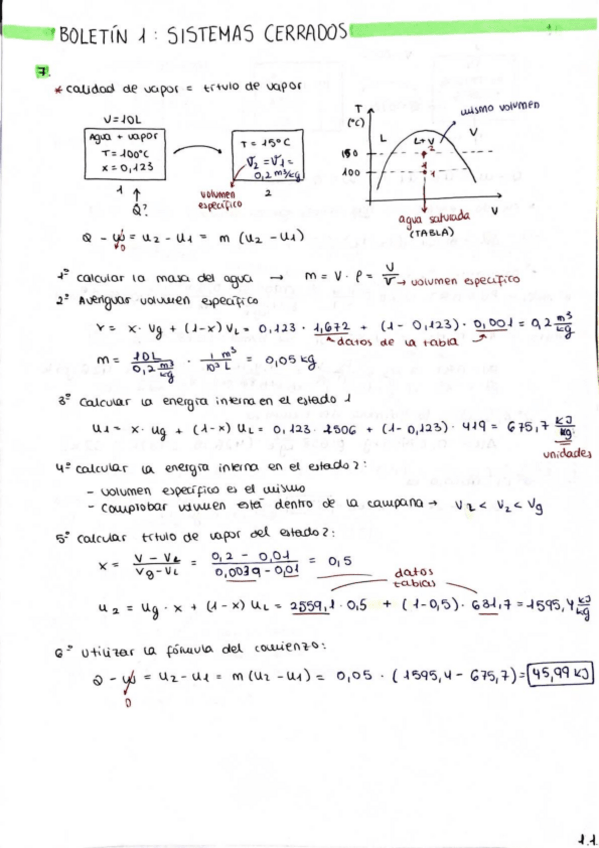 BOLETÍN 1: SISTEMAS CERRADOS
7.
* calidad de vapor = título de vapor
V=10L
Agua + vapor
T=100°C
x=0,123
1
Q?
T = 15°C
V2 = V1 =
0,2 m3/kg
2
volumen
específico
T
(°C)
150
100
L
L+V
V
2
1
mismo volumen
V
agua saturada
(TABLA)
Q - W = U2 - U1 = m (U2 - U1)
0
1º Calcular la masa del agua → m = V · ρ = V/V → volumen específico
2º Averiguar volumen específico
V = x · Vg + (1-x) VL = 0,123 · 1,672 + (1 - 0,123) · 0,001 = 0,2 m3/kg
datos de la tabla
m = 10L / 0,2 m3/kg · 1 m3 / 10³ L = 0,05 kg
3º Calcular la energía interna en el estado 1
U1 = x · Ug + (1-x) UL = 0,123 · 2506 + (1-0,123) · 419 = 675,7 KJ/kg
unidades
4º Calcular la energía interna en el estado 2:
- volumen específico es el mismo
- comprobar volumen está dentro de la campana → VL < V2 < Vg
5º Calcular título de vapor del estado 2:
x = V - VL / Vg - VL = 0,2 - 0,01 / 0,0039 - 0,01 = 0,5
datos
tablas
U2 = Ug · x + (1-x) UL = 2559,1 · 0,5 + (1-0,5) · 631,7 = 1595,4 KJ/kg
6º Utilizar la fórmula del comienzo:
Q - W = U2 - U1 = m (U2 - U1) = 0,05 · (1595,4 - 675,7) = 45,99 KJ
0
1.1